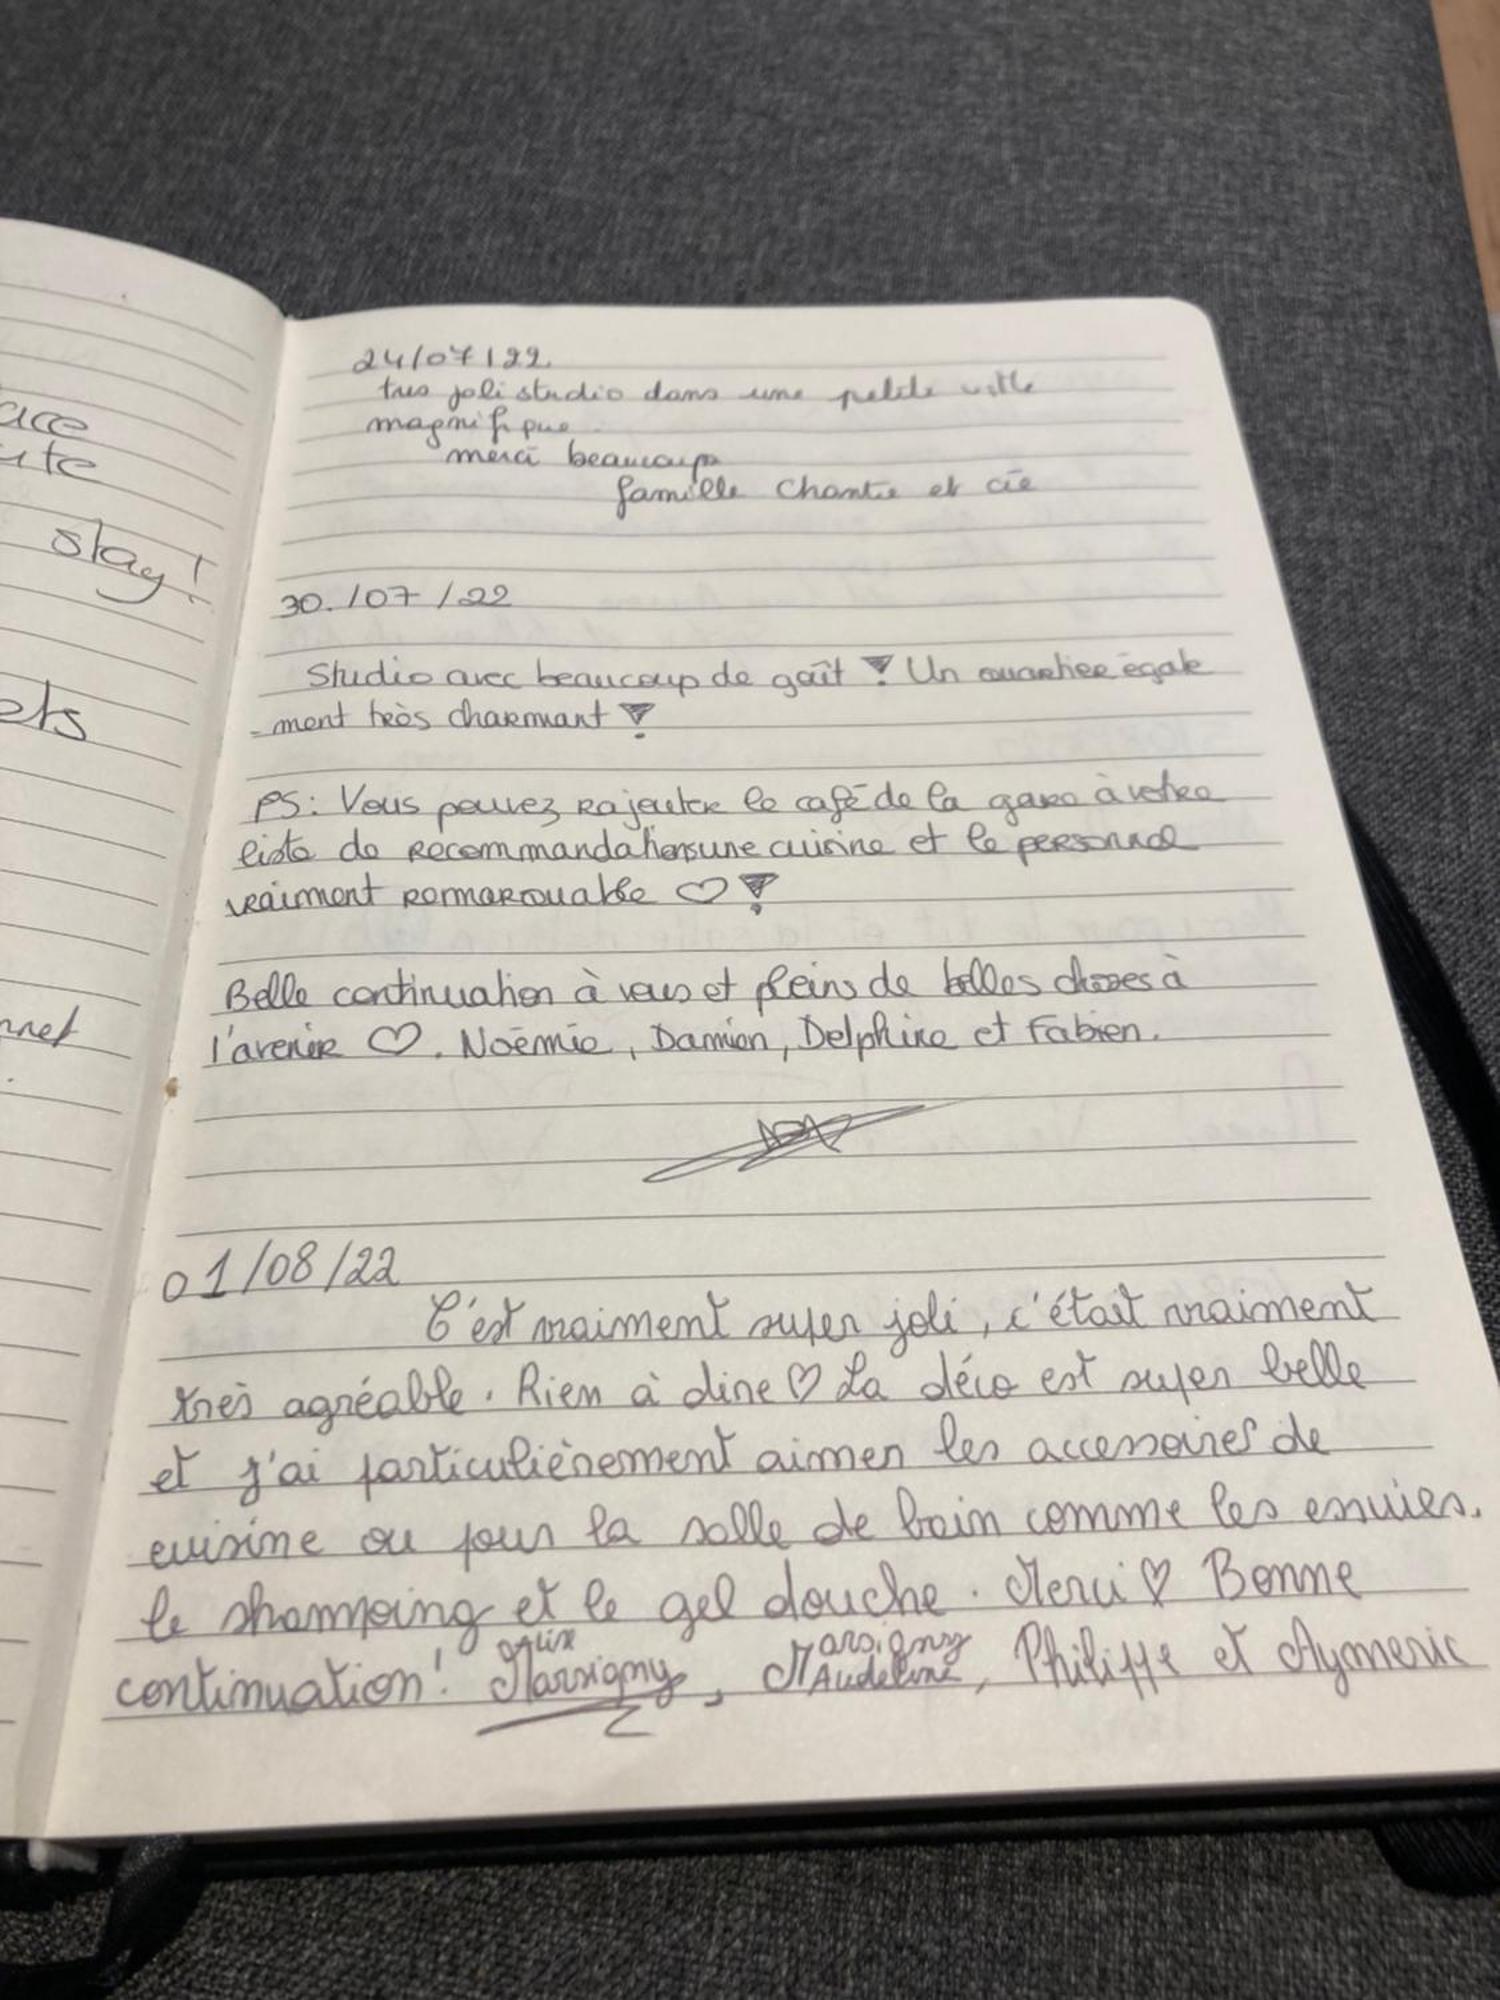 ace
ute
stay!
ets
nnet
24/07/22.
tres joli studio dans une petite ville
magnifique.
merci beaucoup
famille Chantie et cie
30./07/22
Studio avec beaucoup de goût ! Un quartier égale
-ment très charmant !
PS: Vous pouvez rajouter le café de la gare à votre
liste de recommandations une cuisine et le personnel
vraiment remarquable ♡ !
Belle continuation à vous et pleins de belles choses à
l'avenir ♡. Noémie, Damien, Delphine et Fabien.
01/08/22
C'est vraiment super joli, c'était vraiment
très agréable. Rien à dire ♡ La déco est super belle
et j'ai particulièrement aimer les accessoires de
cuisine ou pour la salle de bain comme les essuies,
le shampoing et le gel douche. Merci ♡ Bonne
continuation! Alix Marsigny, Marsigny Audeline, Philippe et Aymeric